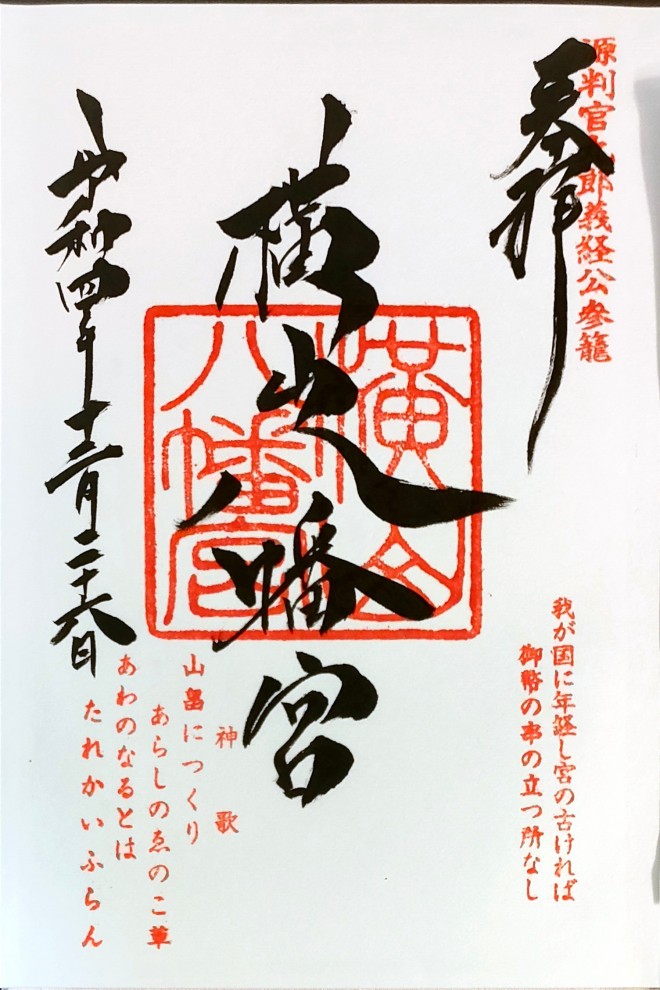 源判官九郎義経公参籠
奉拝
我が国に年経し宮の古ければ
御幣の串の立つ所なし
横山八幡宮
橫山
八幡宮
神歌
山畠につくり
あらしのゑのこ草
あわのなるとは
たれかいふらん
令和四年十二月二十六日